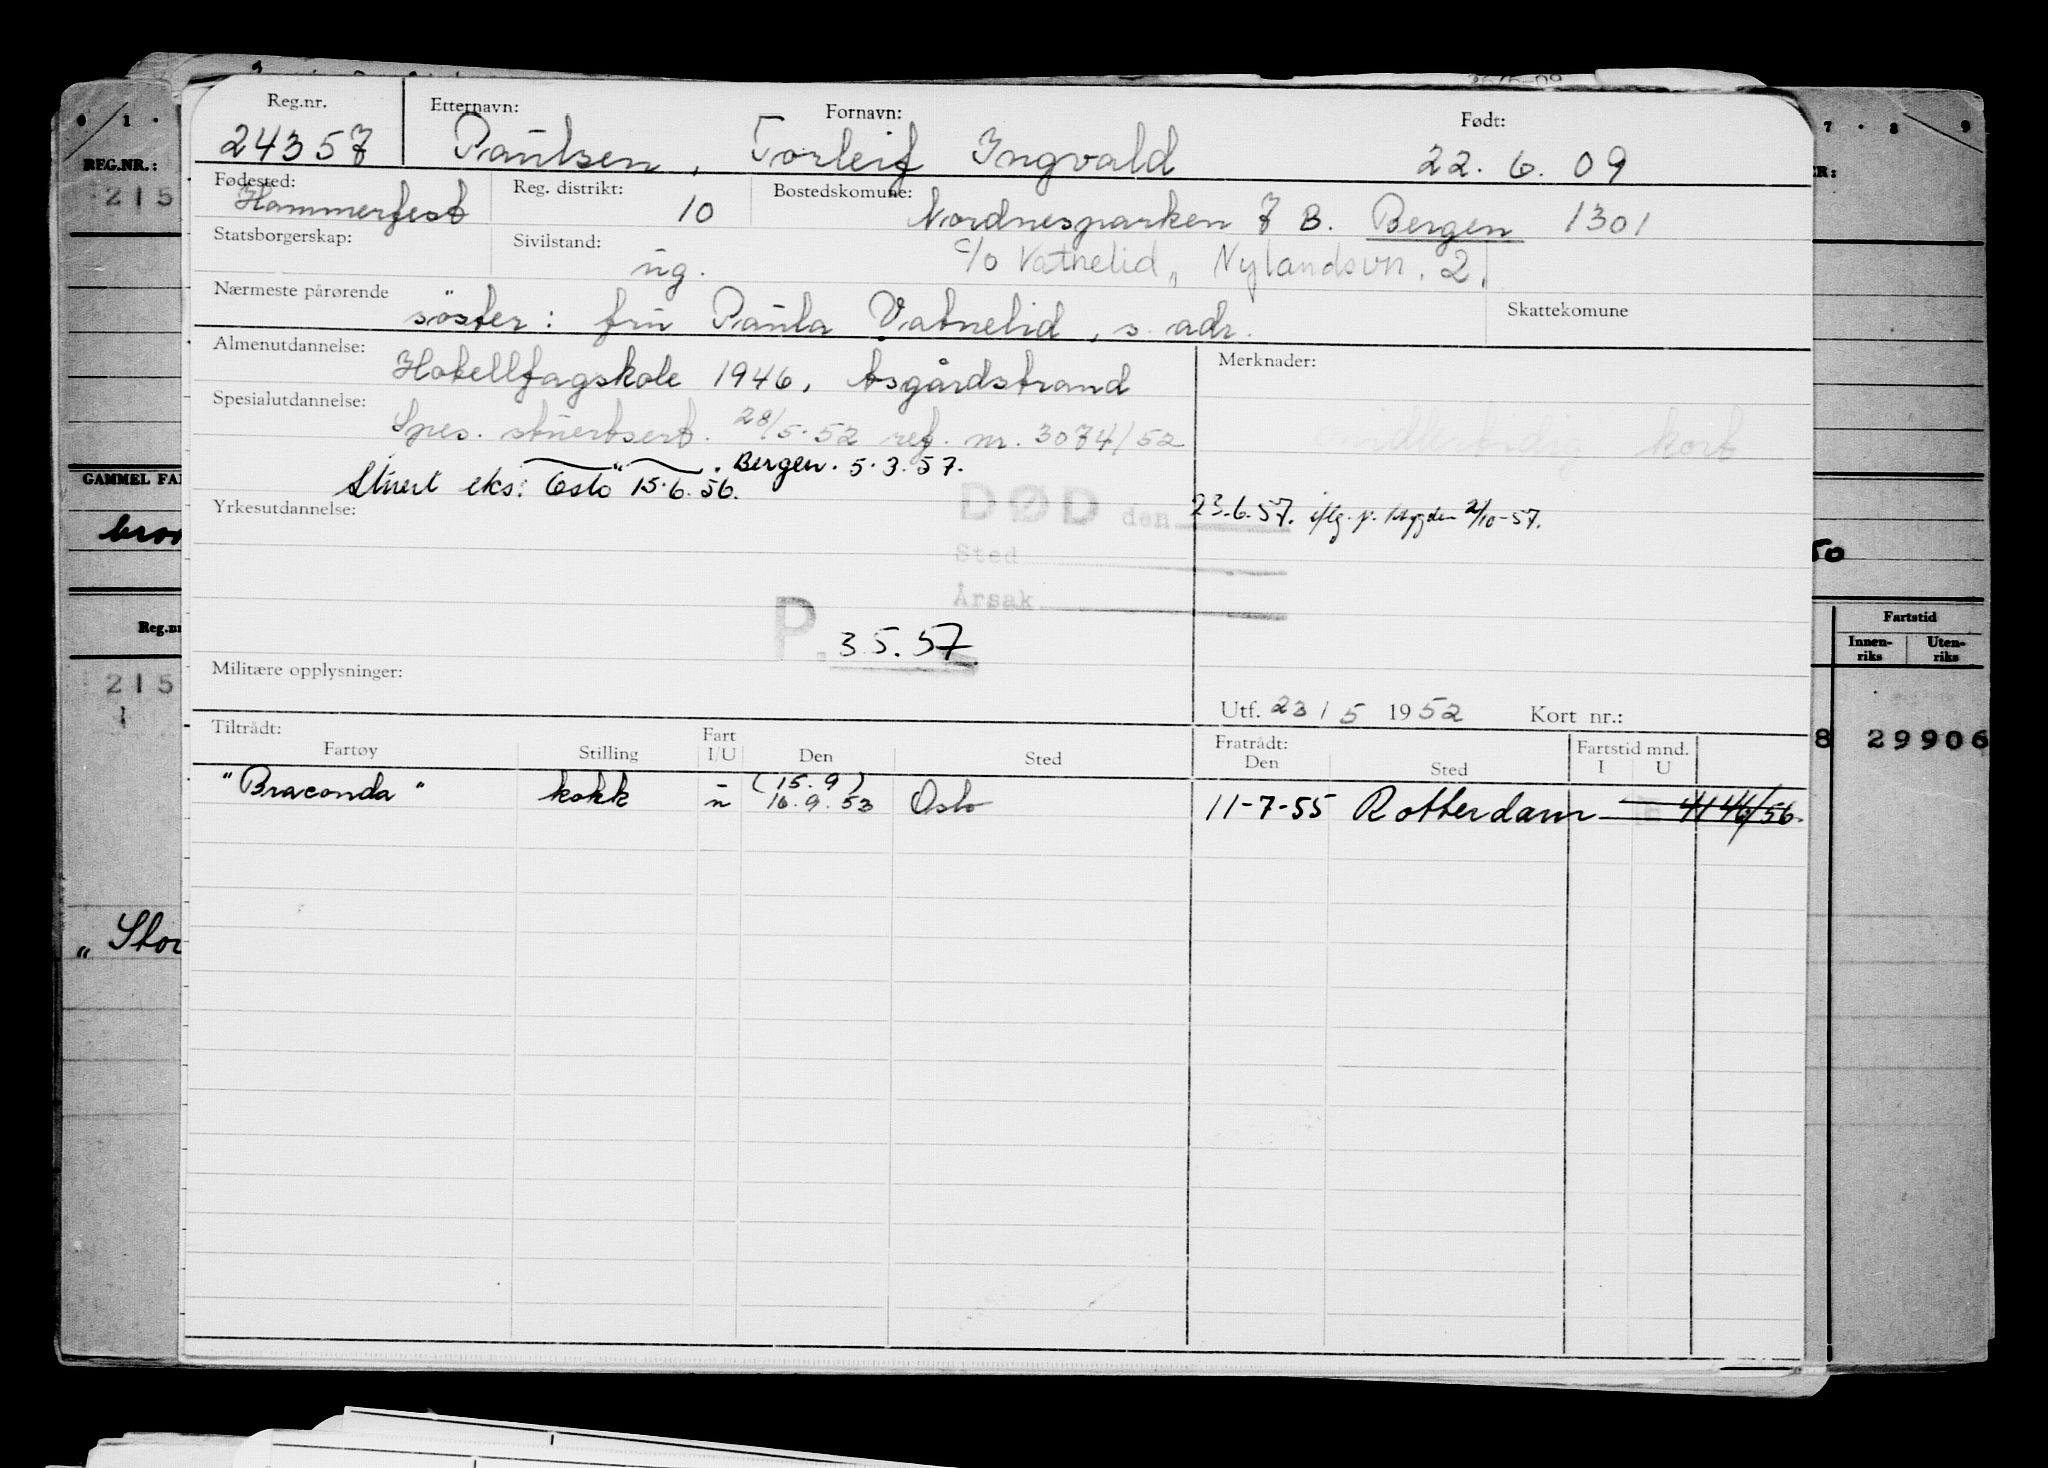 Reg.nr. Etternavn: Fornavn: Født:
24357 Paulsen, Torleif Ingvald 22.6.09
Fødested: Reg. distrikt: Bostedskomune:
Hammerfest 10 Nordnesparken 7 B. Bergen 1301
Statsborgerskap: Sivilstand:
ug. c/o Vatnelid, Nylandsvn. 2.
Nærmeste pårørende Skattekomune
söster: fru Paula Vatnelid, s. adr.
Almenutdannelse: Merknader:
Hotellfagskole 1946, Åsgårdstrand
Spesialutdannelse:
Spes. stuertsert. 28/5.52 ref. nr. 3074/52 kort
" . Bergen. 5.3.57.
Stuert eks: Oslo 15.6.56.
Yrkesutdannelse:
DØD den 23.6.57. iflg. 2/10-57.
Sted
Årsak
P. 3.5.57
Militære opplysninger:
Utf. 23 / 5 1952 Kort nr.:
Tiltrådt: Fart Fratrådt: Fartstid mnd.
Fartøy Stilling I/U Den Sted Den Sted I U
"Braconda" kokk u (15.9) 16.9.53 Oslo 11-7-55 Rotterdam 4146/56.
REG.NR.:
215
GAMMEL FA
Reg.nr
215
1
„Stor
0 1
7 8 9
ER:
50
Fartstid
Innen-riks Uten-riks
8 29906